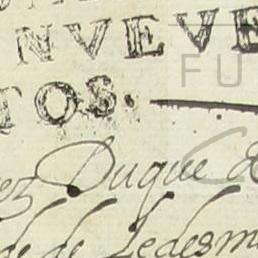 NVEVE
TOS.
ez Duque d
de de Ledesm
FU